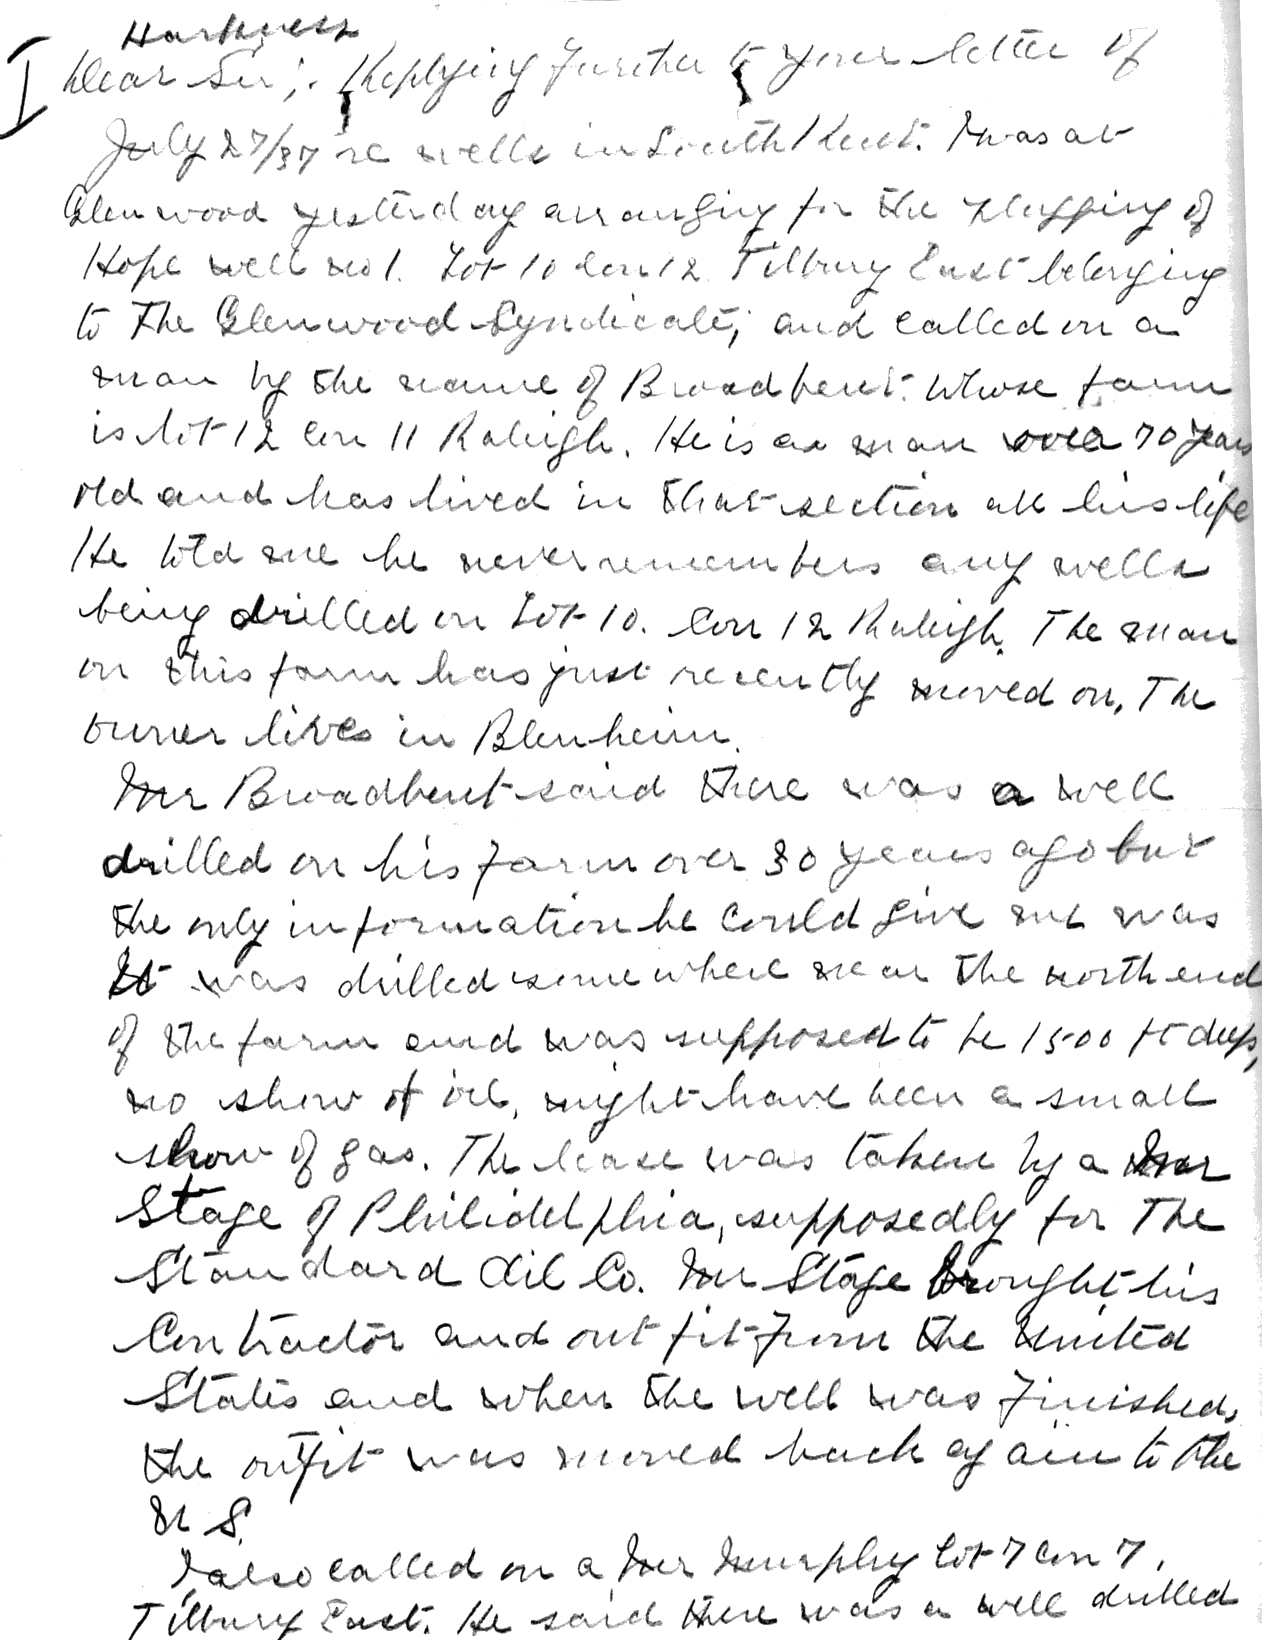 Harkness
I Dear Sir;. Replying Further to your letter of
July 27/37 re wells in South Kent. I was at
Glenwood yesterday arranging for the plugging of
Hope well no 1. Lot 10 Con 12 Tilbury East belonging
to The Glenwood Syndicate, and called on a
man by the name of Broadbent. Whose farm
is lot 12 Con 11 Raleigh. He is a man over 70 years
old and has lived in that section all his life
He told me he never remembers any wells
being drilled on Lot 10. Con 12 Raleigh. The man
on this farm has just recently moved on, The
owner lives in Blenheim.
Mr Broadbent said there was a well
drilled on his farm over 30 years ago but
the only information he could give me was
It was drilled some where near the north end
of the farm and was supposed to be 1500 ft deep,
no show of oil, might have been a small
show of gas. The lease was taken by a Mr
Stage of Philidelphia, supposedly for The
Standard Oil Co. Mr Stage brought his
Contractor and out fit From the United
States and when the well was Finished,
the outfit was moved back again to the
U S.
I also called on a Mr Murphy Lot 7 Con 7,
Tilbury East. He said there was a well drilled